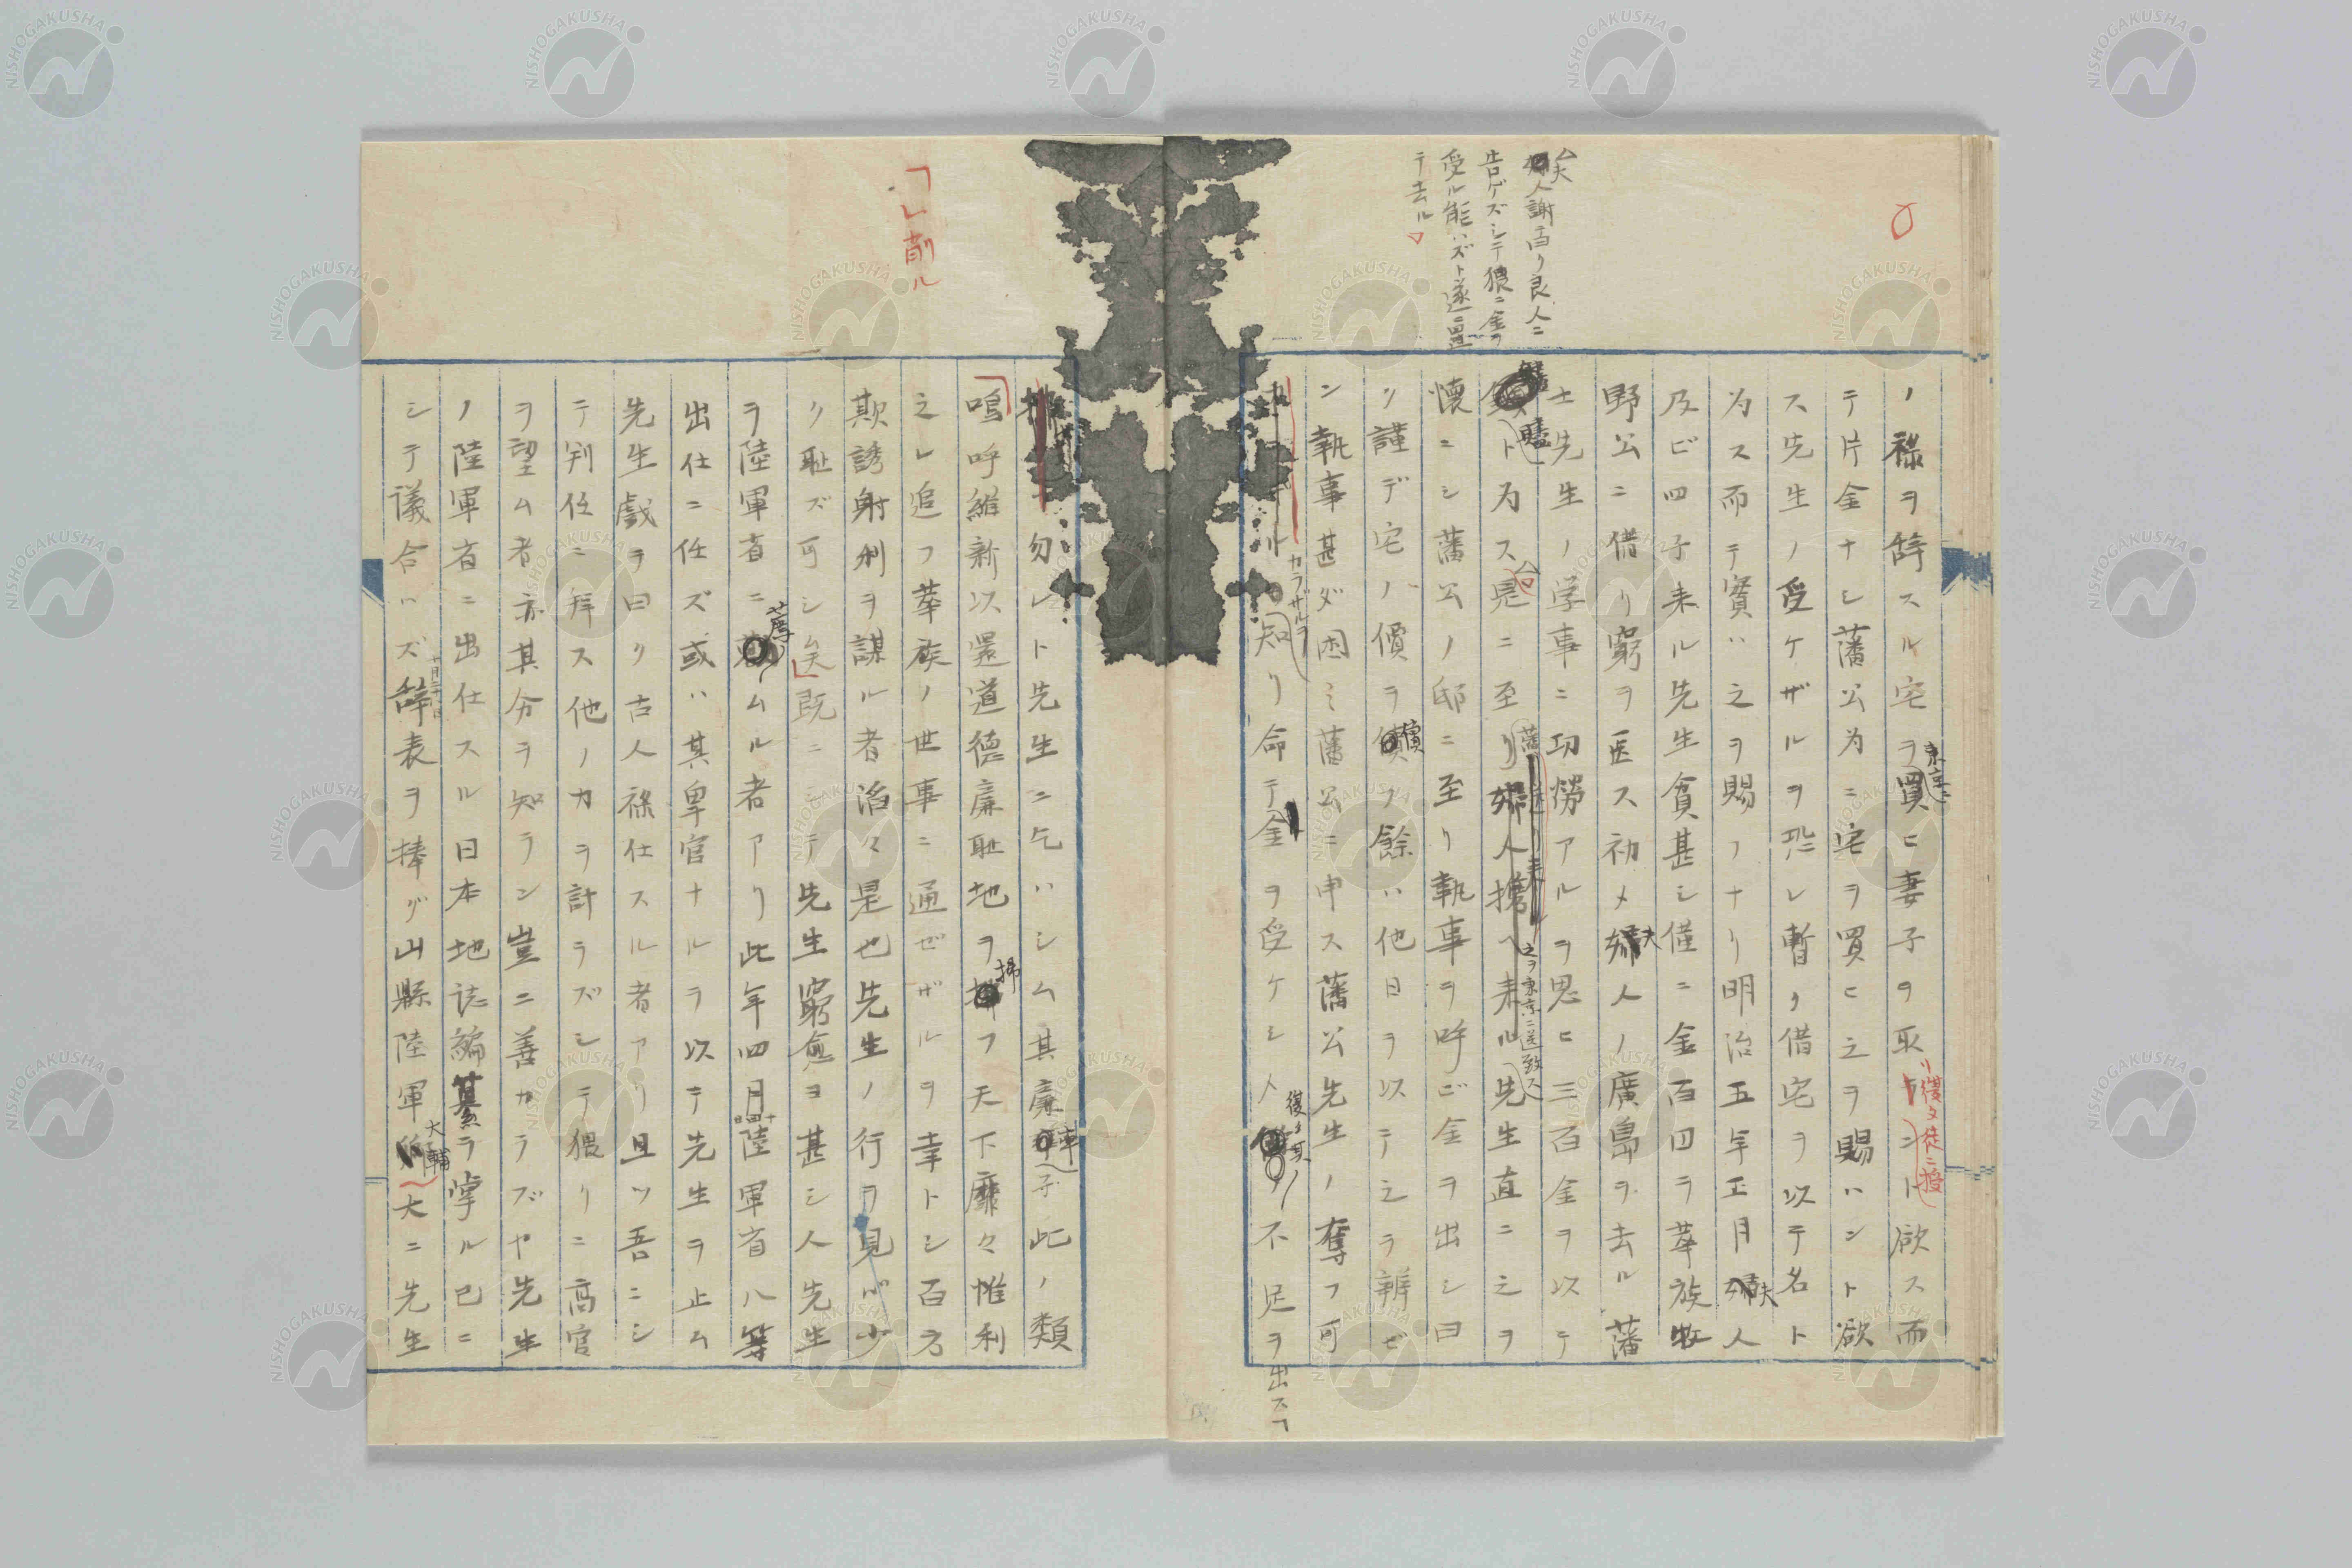 夫
人謝曰ク良人ニ
告ゲズシテ猥ニ金ヲ
受ル能ハズト遂ニ置
テ去ル
ノ禄ヲ辞スル宅ヲ買ヒ妻子ヲ取ント欲ス而
東京ニ
リ復タ徒ニ授
テ片金ナシ藩公為ニ宅ヲ買ヒ之ヲ賜ハント欲
ス先生ノ受ケザルヲ恐レ暫ク借宅ヲ以テ名ト
為ス而テ實ハ之ヲ賜フナリ明治五年正月夫人
及ビ四子来ル先生貧甚シ僅ニ金百円ヲ華族牧
野公ニ借リ窮ヲ医ス初メ夫人ノ廣島ヲ去ル藩
士先生ノ学事ニ功勞アルヲ思ヒ三百金ヲ以テ
贐ト为ス是ニ至リ婦人携ヘ来ル先生直ニ之ヲ
之ヲ東京ニ送致ス
懐ニシ藩公ノ邸ニ至リ執事ヲ呼ビ金ヲ出シ曰
ク謹デ宅ノ價ヲ償フ餘ハ他日ヲ以テ之ヲ辨ゼ
ン執事甚ダ困ミ藩公ニ申ス藩公先生ノ奪フ可
カラザルヲ
知リ命テ金ヲ受ケシメ
復タ其ノ
不足ヲ出スヿ
勿レト先生ニ乞ハシム其廉此ノ類
嗚呼維新以還道德廉耻地ヲ掃フ天下靡々惟利
之レ追フ華族ノ世事ニ通ゼザルヲ幸トシ百方
欺誘射利ヲ謀ル者滔々是也先生ノ行ヲ見バ少
ク耻ズ可シ矣既ニシテ先生窮愈ヨ甚シ人先生
ヲ陸軍省ニ薦ムル者アリ此年四月陸軍省八等
十四日
出仕ニ任ズ或ハ其卑官ナルヲ以テ先生ヲ止ム
先生戯ヲ曰ク古人禄仕スル者アリ且ツ吾ニシ
テ判任ニ拜ス他ノ力ヲ計ラズシテ猥リニ高官
ヲ望ム者亦其分ヲ知ラン豈ニ善カラズヤ先生
ノ陸軍省ニ出仕スル日本地誌編纂ヲ掌ル已ニ
シテ議合ハズ辞表ヲ捧グ山縣陸軍大輔大ニ先生
「レ削ル